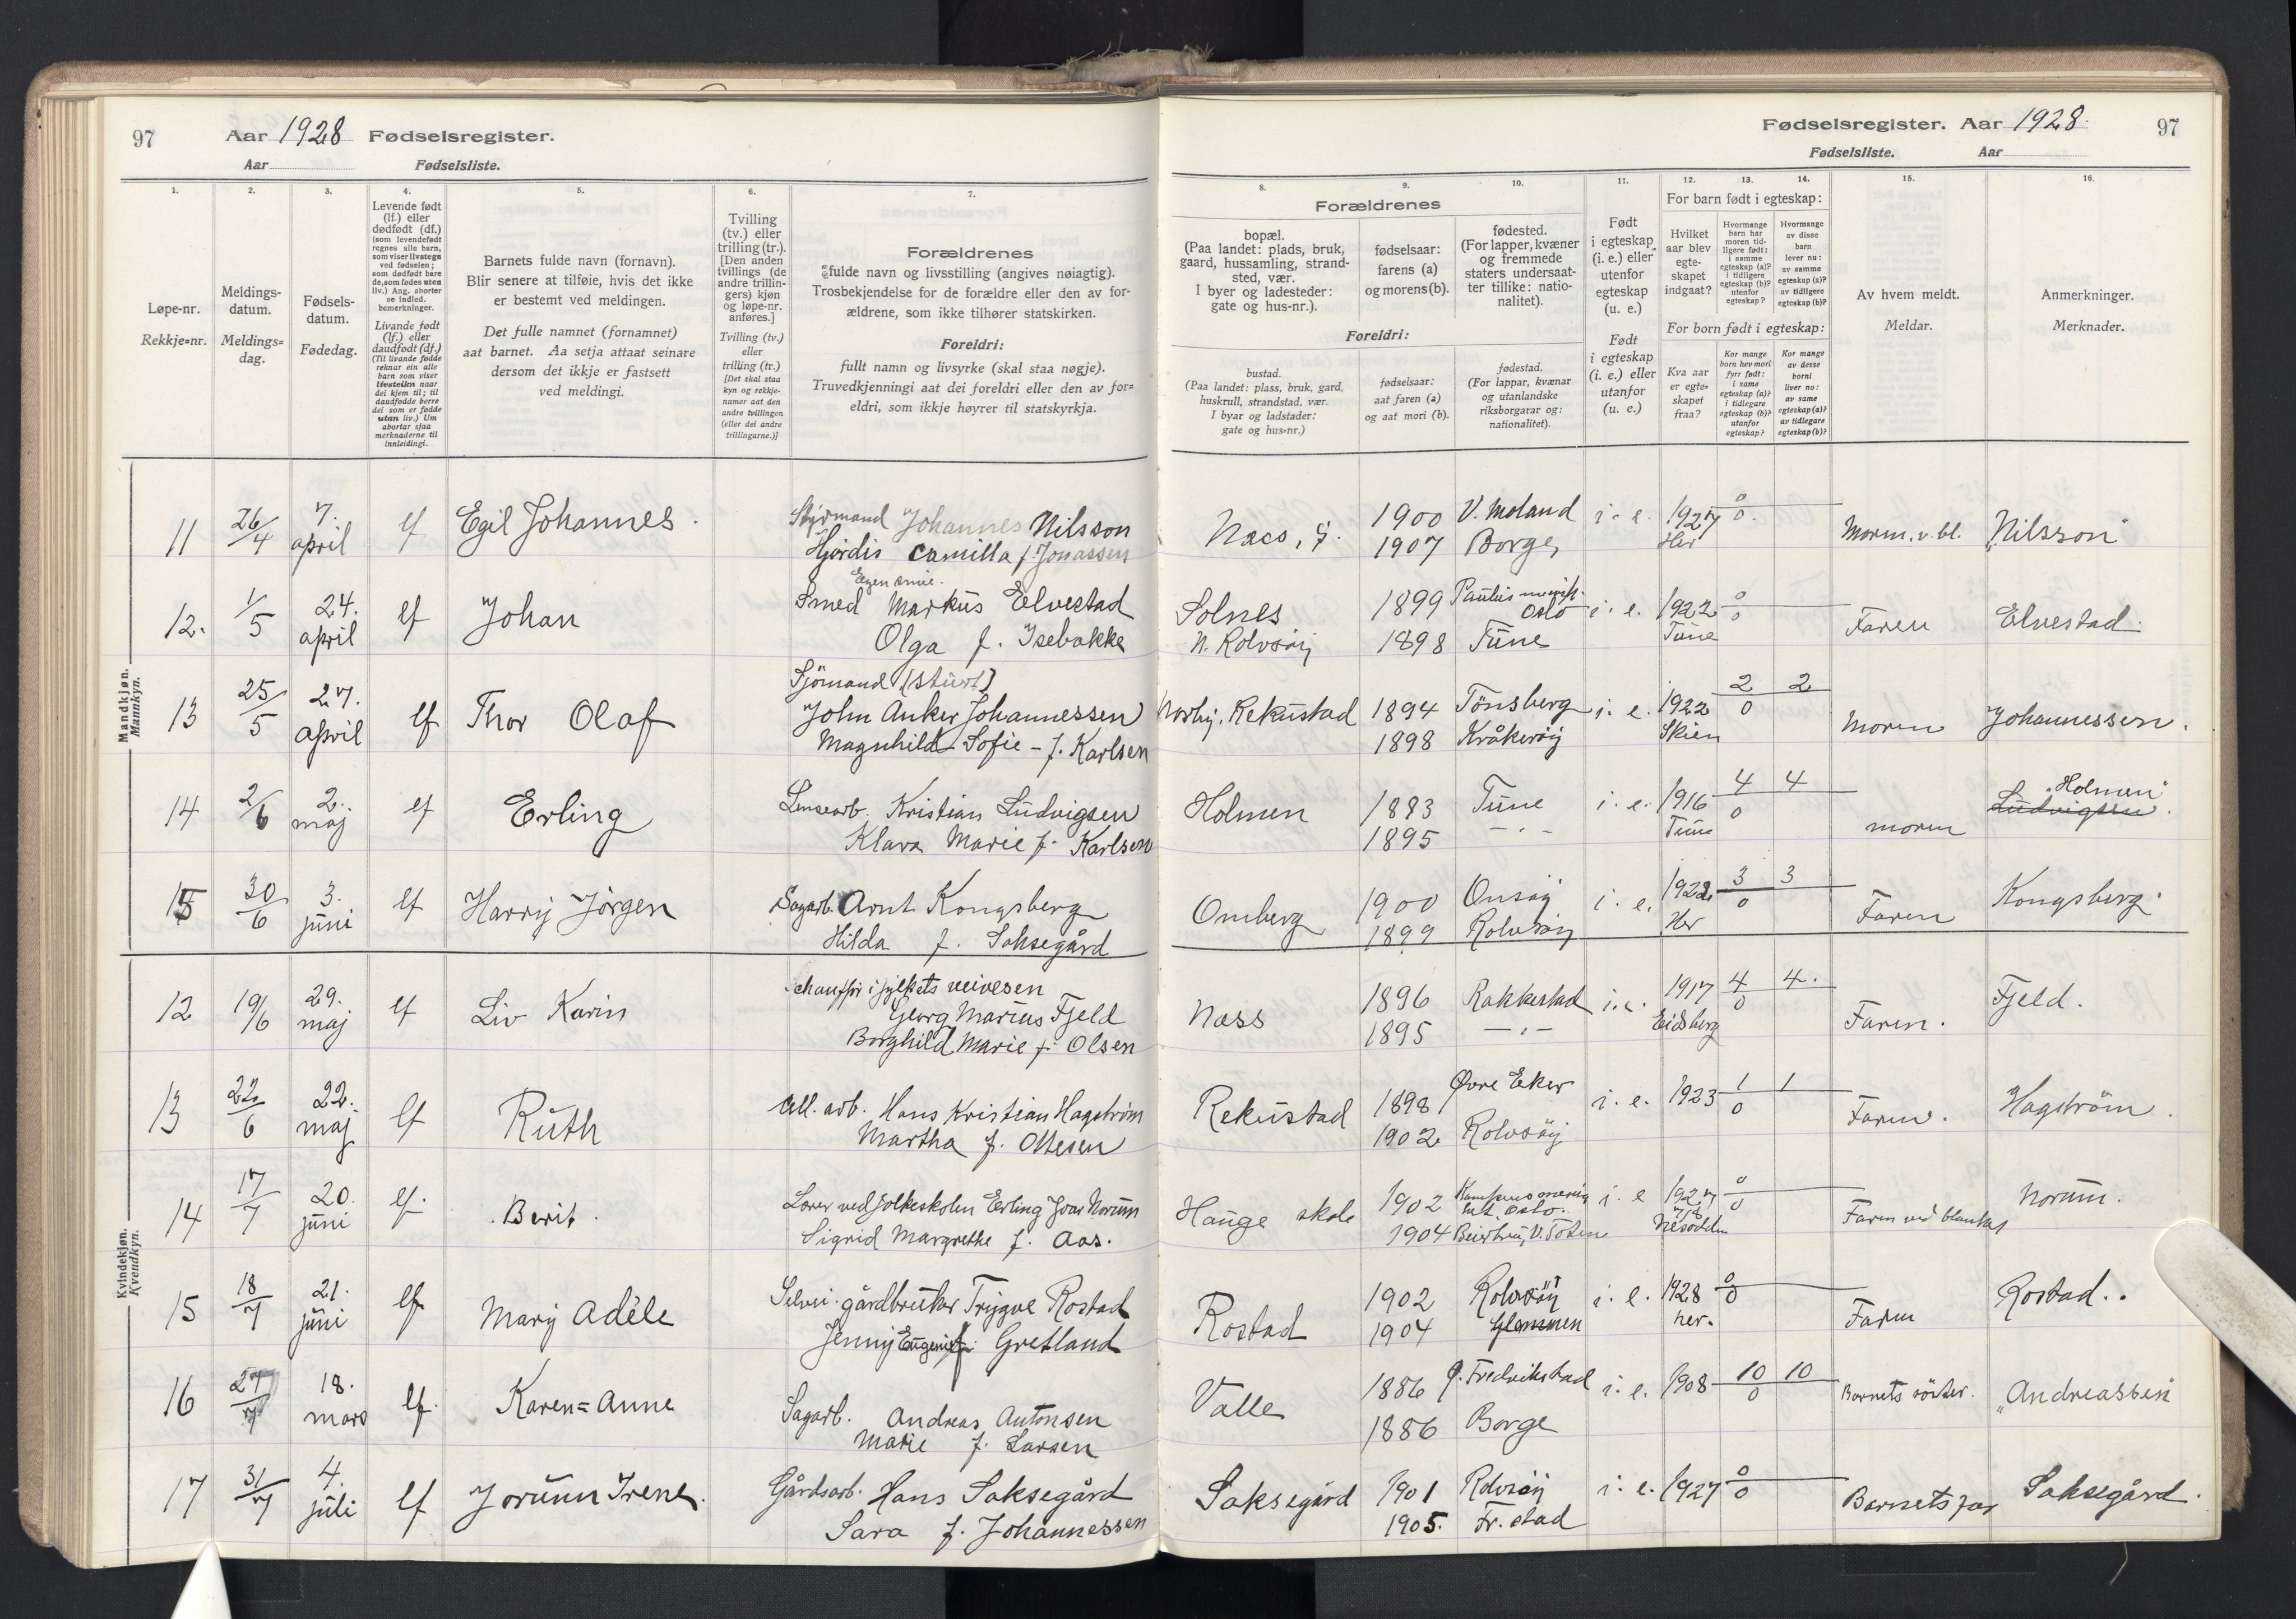 97
Aar 1928 Fødselsregister.
Aar
Fødselsliste.
1.
2.
3.
4.
5.
6.
7.
Løpe-nr.
Rekkje=nr.
Meldings-
datum.
Meldings=
dag.
Fødsels-
datum.
Fødedag.
Levende født
(lf.) eller
dødfødt (df.)
(som levendefødt
regnes alle barn,
som viser livstegn
ved fødselen;
som dødfødt bare
de, som fødes uten
liv.) Ang. aborter
se indled.
bemerkninger.
Livande født
(lf.) eller
daudfødt (df.)
(Til livande fødde
reknar ein alle
barn som viser
livsteikn naar
dei kjem til; til
daudfødde berre
dei som er fødde
utan liv.) Um
abortar sjaa
merknaderne til
innleidingi.
Barnets fulde navn (fornavn).
Blir senere at tilføie, hvis det ikke
er bestemt ved meldingen.
Det fulle namnet (fornamnet)
aat barnet. Aa setja attaat seinare
dersom det ikkje er fastsett
ved meldingi.
Tvilling
(tv.) eller
trilling (tr.).
[Den anden
tvillings (de
andre trillin-
gers) kjøn
og løpe-nr.
anføres.]
Tvilling (tv.)
eller
trilling (tr.)
[Det skal staa
kyn og rekkje-
numer aat den
andre tvillingen
(eller dei andre
trillingarne.)]
Forældrenes
fulde navn og livsstilling (angives nøiagtig).
Trosbekjendelse for de forældre eller den av for-
ældrene, som ikke tilhører statskirken.
Foreldri:
fullt namn og livsyrke (skal staa nøgje).
Truvedkjenningi aat dei foreldri eller den av for=
eldri, som ikkje høyrer til statskyrkja.
Fødselsregister. Aar 1928.
97
Fødselsliste.
Aar
8.
9.
10.
11.
12.
13.
14.
15.
16.
Forældrenes
bopæl.
(Paa landet: plads, bruk,
gaard, hussamling, strand-
sted, vær.
I byer og ladesteder:
gate og hus-nr.).
fødselsaar:
farens (a)
og morens (b).
fødested.
(For lapper, kvæner
og fremmede
staters undersaat-
ter tillike: natio-
nalitet).
Foreldri:
bustad.
(Paa landet: plass, bruk, gard,
huskrull, strandstad, vær.
I byar og ladstader:
gate og hus=nr.)
fødselsaar:
aat faren (a)
og aat mori (b).
fødestad.
(For lappar, kvænar
og utanlandske
riksborgarar og:
nationalitet).
Født
i egteskap
(i. e.) eller
utenfor
egteskap
(u. e.)
Født
i egteskap
(i. e.) eller
utanfor
(u. e.)
For barn født i egteskap:
Hvilket
aar blev
egte-
skapet
indgaat?
Hvormange
barn har
moren tid-
ligere født:
i samme
egteskap (a)?
i tidligere
egteskap (b)?
utenfor
egteskap?
Hvormange
av disse
barn
lever nu:
av samme
egteskap (a)?
av tidligere
egteskap (b)?
For born født i egteskap:
Kva aar
er egte=
skapet
fraa?
Kor mange
born hev mori
fyrr født:
i same
egteskap (a)?
i tidlegare
egteskap (b)?
utanfor
egteskap?
Kor mange
av desse
borni
liver no:
av same
egteskap (a)?
av tidlegare
egteskap (b)?
Av hvem meldt.
Meldar.
Anmerkninger.
Merknader.
Mandkjøn.
Mannkyn.
11 26/4 7. april lf Egil Johannes. Styrmand Johannes Nilsson
Hjørdis Camilla f. Jonassen
Naes, 1900 V. Moland i. e. 1927 0/0. Moren. v. bl. "Nilsson"
1907 Borge, Her
12. 1/5 24. april lf Johan Egen smie.
Smed Markus Elvestad
Olga f. Isebakke
Solnes 1899 Paulus Oslo i. e. 1922 0/0 Faren Elvestad.
N. Rolvsøy 1898 Tune Tune
13 25/5 27. april lf Thor Olaf Sjömand (stuert)
John Anker Johannessen
Magnhild Sofie - f. Karlsen
Norby, Rekustad 1894 Tönsberg i. e. 1922 2/0 2 Moren Johannessen.
1898 Kråkerøy Skien
14 2/6 2. maj lf Erling Lensearb. Kristian Ludvigsen
Klara Marie f. Karlsen
Holmen 1883 Tune i. e. 1916 4/0 4 moren "Holmen"
1895 -"- Tune Ludvigsen.
15 30/6 3. juni lf Harry Jörgen Sagarb. Arnt Kongsberg
Hilda f. Saksegård
Omberg 1900 Onsøy i. e. 1922 3/0 3 Faren Kongsberg.
1899 Rolvsöy Her
Kvindekjøn.
Kvendkyn.
12 19/6 29. maj lf Liv Karin Schauffør i fylkets veivesen
Georg Marius Fjeld
Borghild Marie f. Olsen
Nass 1896 Rakkestad i. e. 1917 4/0 4. Faren. Fjeld.
1895 -"- Eidsberg
13 22/6 22. maj lf Ruth Cell. arb. Hans Kristian Hagström
Martha f. Ottesen
Rekustad 1898 Øvre Eker i. e. 1923 1/0 1 Faren. Hagström.
1902 Rolvsöy
14 17/7 20. juni lf. Berit. Lærer ved folkeskolen Erling Ivar Norum
Sigrid Margrethe f. Aas.
Hauge skole 1902 Oslo. i. e 1927 0/0 Faren ved blanket Norum.
1904 V. Toten Nesodden
15 18/7 21. juni lf Mary Adèle Selvei. gårdbruker Trygve Rostad
Jenny Eugenie f. Gretland
Rostad 1902 Rolvsöy i. e. 1928 0/0 Faren Rostad..
1904 Glemmen her.
16 27/7 18. mars lf. Karen=Anne Sagarb. Andreas Antonsen
Marie f. Larsen
Valle 1886 g. Fredrikstad i. e. 1908 10/0 10 Barnets söster. "Andreassen"
1886 Borge
17 31/7 4. juli lf Jorunn Irene. Gårdsarb. Hans Saksegård
Sara f. Johannessen
Saksegård 1901 Rolvsöy i. e. 1927 0/0 Barnets far Saksegård.
1905. Fr. stad